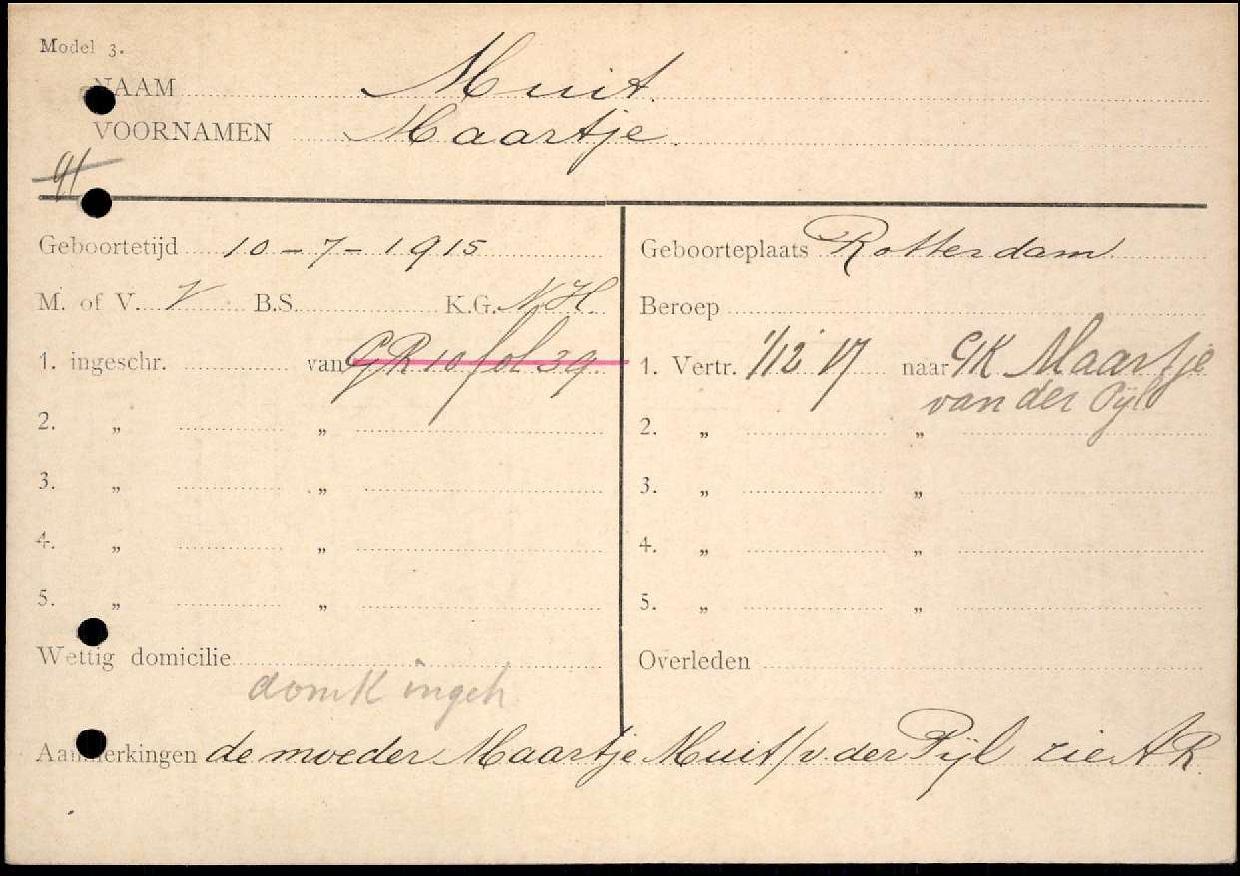 Model 3.
NAAM Muit.
VOORNAMEN Maartje.
Geboortetijd 10-7-1915 Geboorteplaats Rotterdam
M. of V. V B.S. K.G. N.H. Beroep
1. ingeschr. van GR 10 fol 39 1. Vertr. 1/12 17 naar GK Maartje
van der Pijl
2. „ „ 2. „ „
3. „ „ 3. „ „
4. „ „ 4. „ „
5. „ „ 5. „ „
Wettig domicilie Overleden
domK ingeh
Aanmerkingen de moeder Maartje Muit/v. der Pijl zie A R.